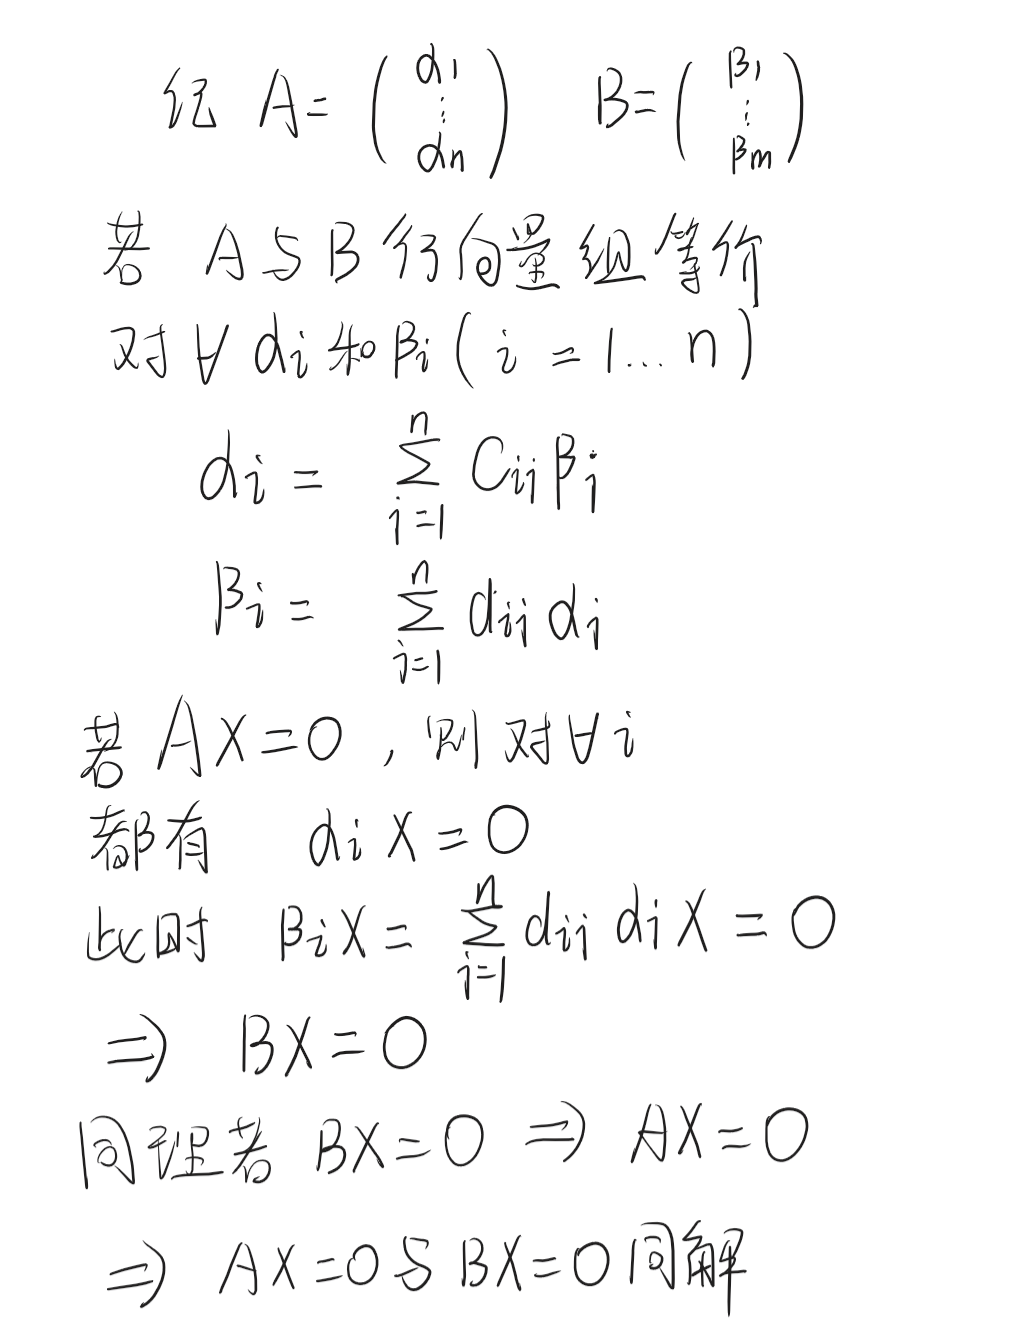 记 A = (α1 ⋮ αn) B = (β1 ⋮ βm)
若 A与B行向量组等价
对∀ αi 和 βi ( i = 1... n )
αi = ∑_{j=1}^{n} Cij βj
βi = ∑_{j=1}^{n} dij αj
若 AX=0 , 则对∀i
都有 αi X = 0
此时 βi X = ∑_{j=1}^{n} dij αj X = 0
⇒ BX = 0
同理若 BX=0 ⇒ AX=0
⇒ AX=0与BX=0同解